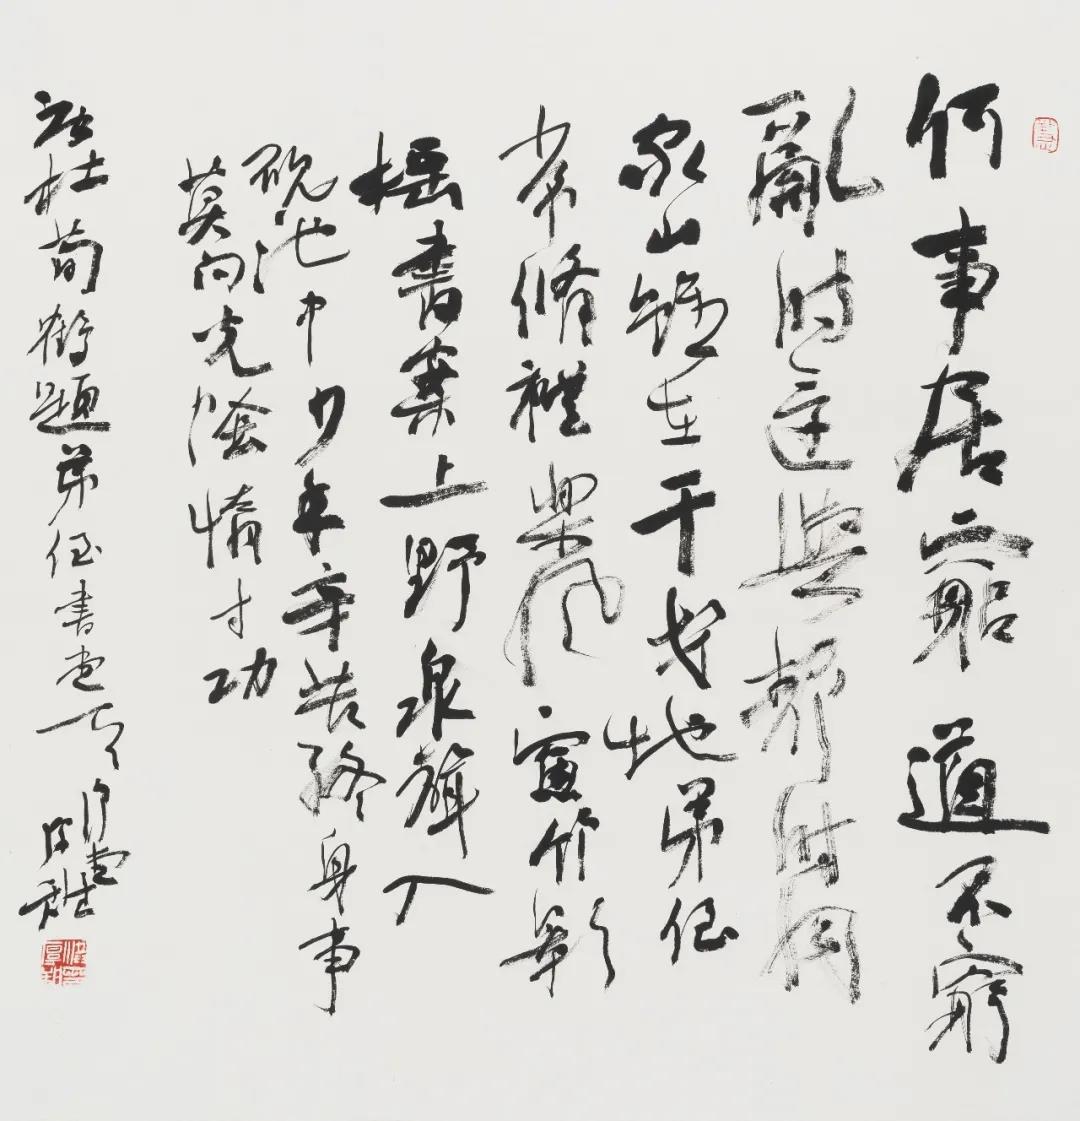 何事居窮道不窮
亂時還與靜時同
家山雖在干戈地弟侄
常脩禮樂風窗竹影
搖書案上野泉聲入
硯池中少年辛苦終身事
莫向光陰惰寸功
唐杜荀鶴題弟侄書堂